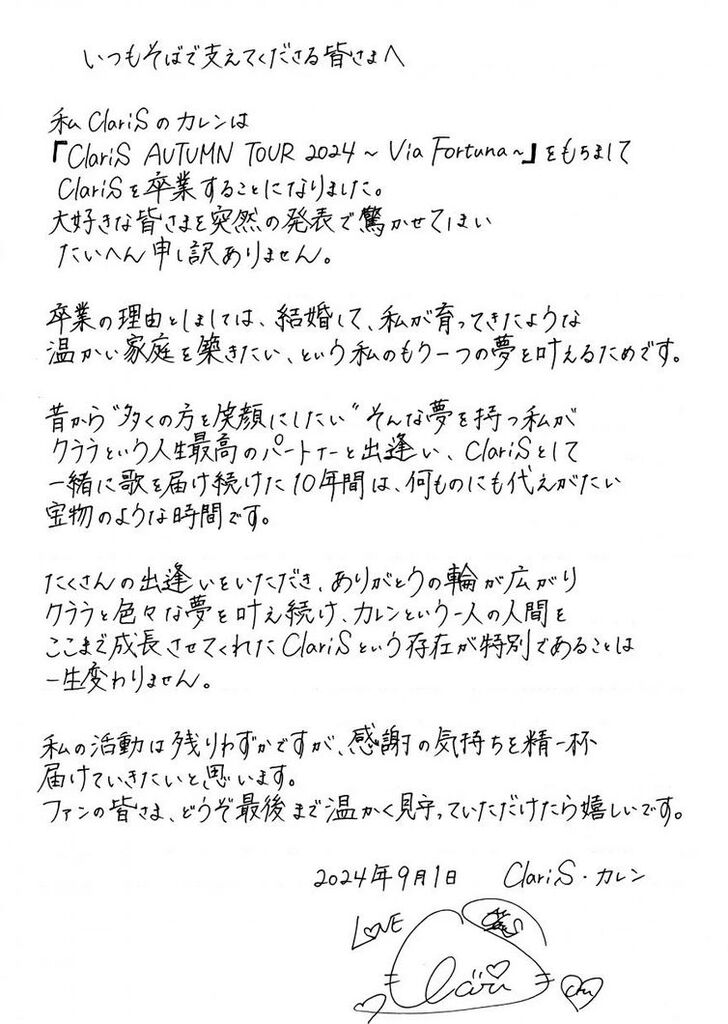 いつもそばで支えてくださる皆さまへ
私 ClariS のカレンは
「ClariS AUTUMN TOUR 2024 ~ Via Fortuna ~」をもちまして
ClariSを卒業することになりました。
大好きな皆さまを突然の発表で驚かせてしまい
たいへん申し訳ありません。
卒業の理由としましては、結婚して、私が育ってきたような
温かい家庭を築きたい、という私のもう一つの夢を叶えるためです。
昔から"多くの方を笑顔にしたい"そんな夢を持つ私が
クララという人生最高のパートナーと出逢い、ClariSとして
一緒に歌を届け続けた10年間は、何ものにも代えがたい
宝物のような時間です。
たくさんの出逢いをいただき、ありがとうの輪が広がり
クララと色々な夢を叶え続け、カレンという一人の人間を
ここまで成長させてくれたClariSという存在が特別であることは
一生変わりません。
私の活動は残りわずかですが、感謝の気持ちを精一杯
届けていきたいと思います。
ファンの皆さま、どうぞ最後まで温かく見守っていただけたら嬉しいです。
2024年9月1日 ClariS・カレン
LOVE